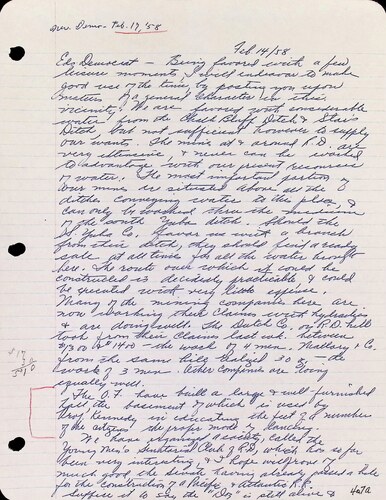 Nev. Demo- Feb. 17, '58
Feb 14/58
Eds Democrat - Being favored with a few
leisure moments, I will endeavor to make
good use of the time, by posting you upon
matters of a general character in this
vicinity. We are favored with considerable
water from the Chalk Bluff Ditch &
Ditch, but not sufficient however to supply
our wants. The mines at & around R.D. are
very extensive & never can be worked
to advantage with our present resources
of water. The most important portion of
our mines is situated above all the
ditches conveying water to this place, &
can only be reached thru the
of the South Yuba ditch. Should the
S. Yuba Co. favor us with a branch
from their ditch, they should find a ready
sale at all times for all the water brought
here. The route over which it could be
constructed is decidedly practicable & could
be executed with very little expense.
Many of the mining companies here are
now working their claims with hydraulics
& are doing well. The Dutch Co. on R.D. Hill
took from their claims last wk. between
$1300 & 1400 - the work of 4 men. & Co.
from the same hill 30 oz. - the
work of 3 men. Other companies are doing
equally well.
The O.F. have built a large & well-furnished
the basement of which is used by
Prof. Kennedy in educating the feet of a number
of the citizens the proper mode of dancing.
We have organized a society, called the
Young Men's Club of R.D., which has so far
been very interesting, & I hope will prove of
much good. The debate having already passed a bill
for the construction of a Pacific & Atlantic R.R.
suffice it to say, the "Dog" is still alive &
$17